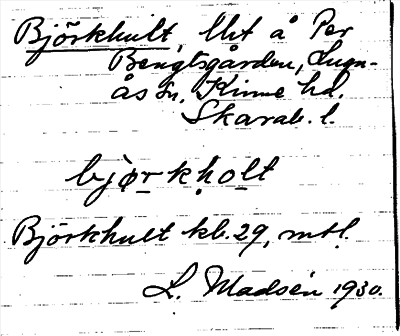 Björkhult, lht å Per
Bengtsgården, Lugn-
ås sn, Kinne hd.
Skarab. l.
bjørkholt
Björkhult kb. 29, mtl.
L. Madsén 1930.